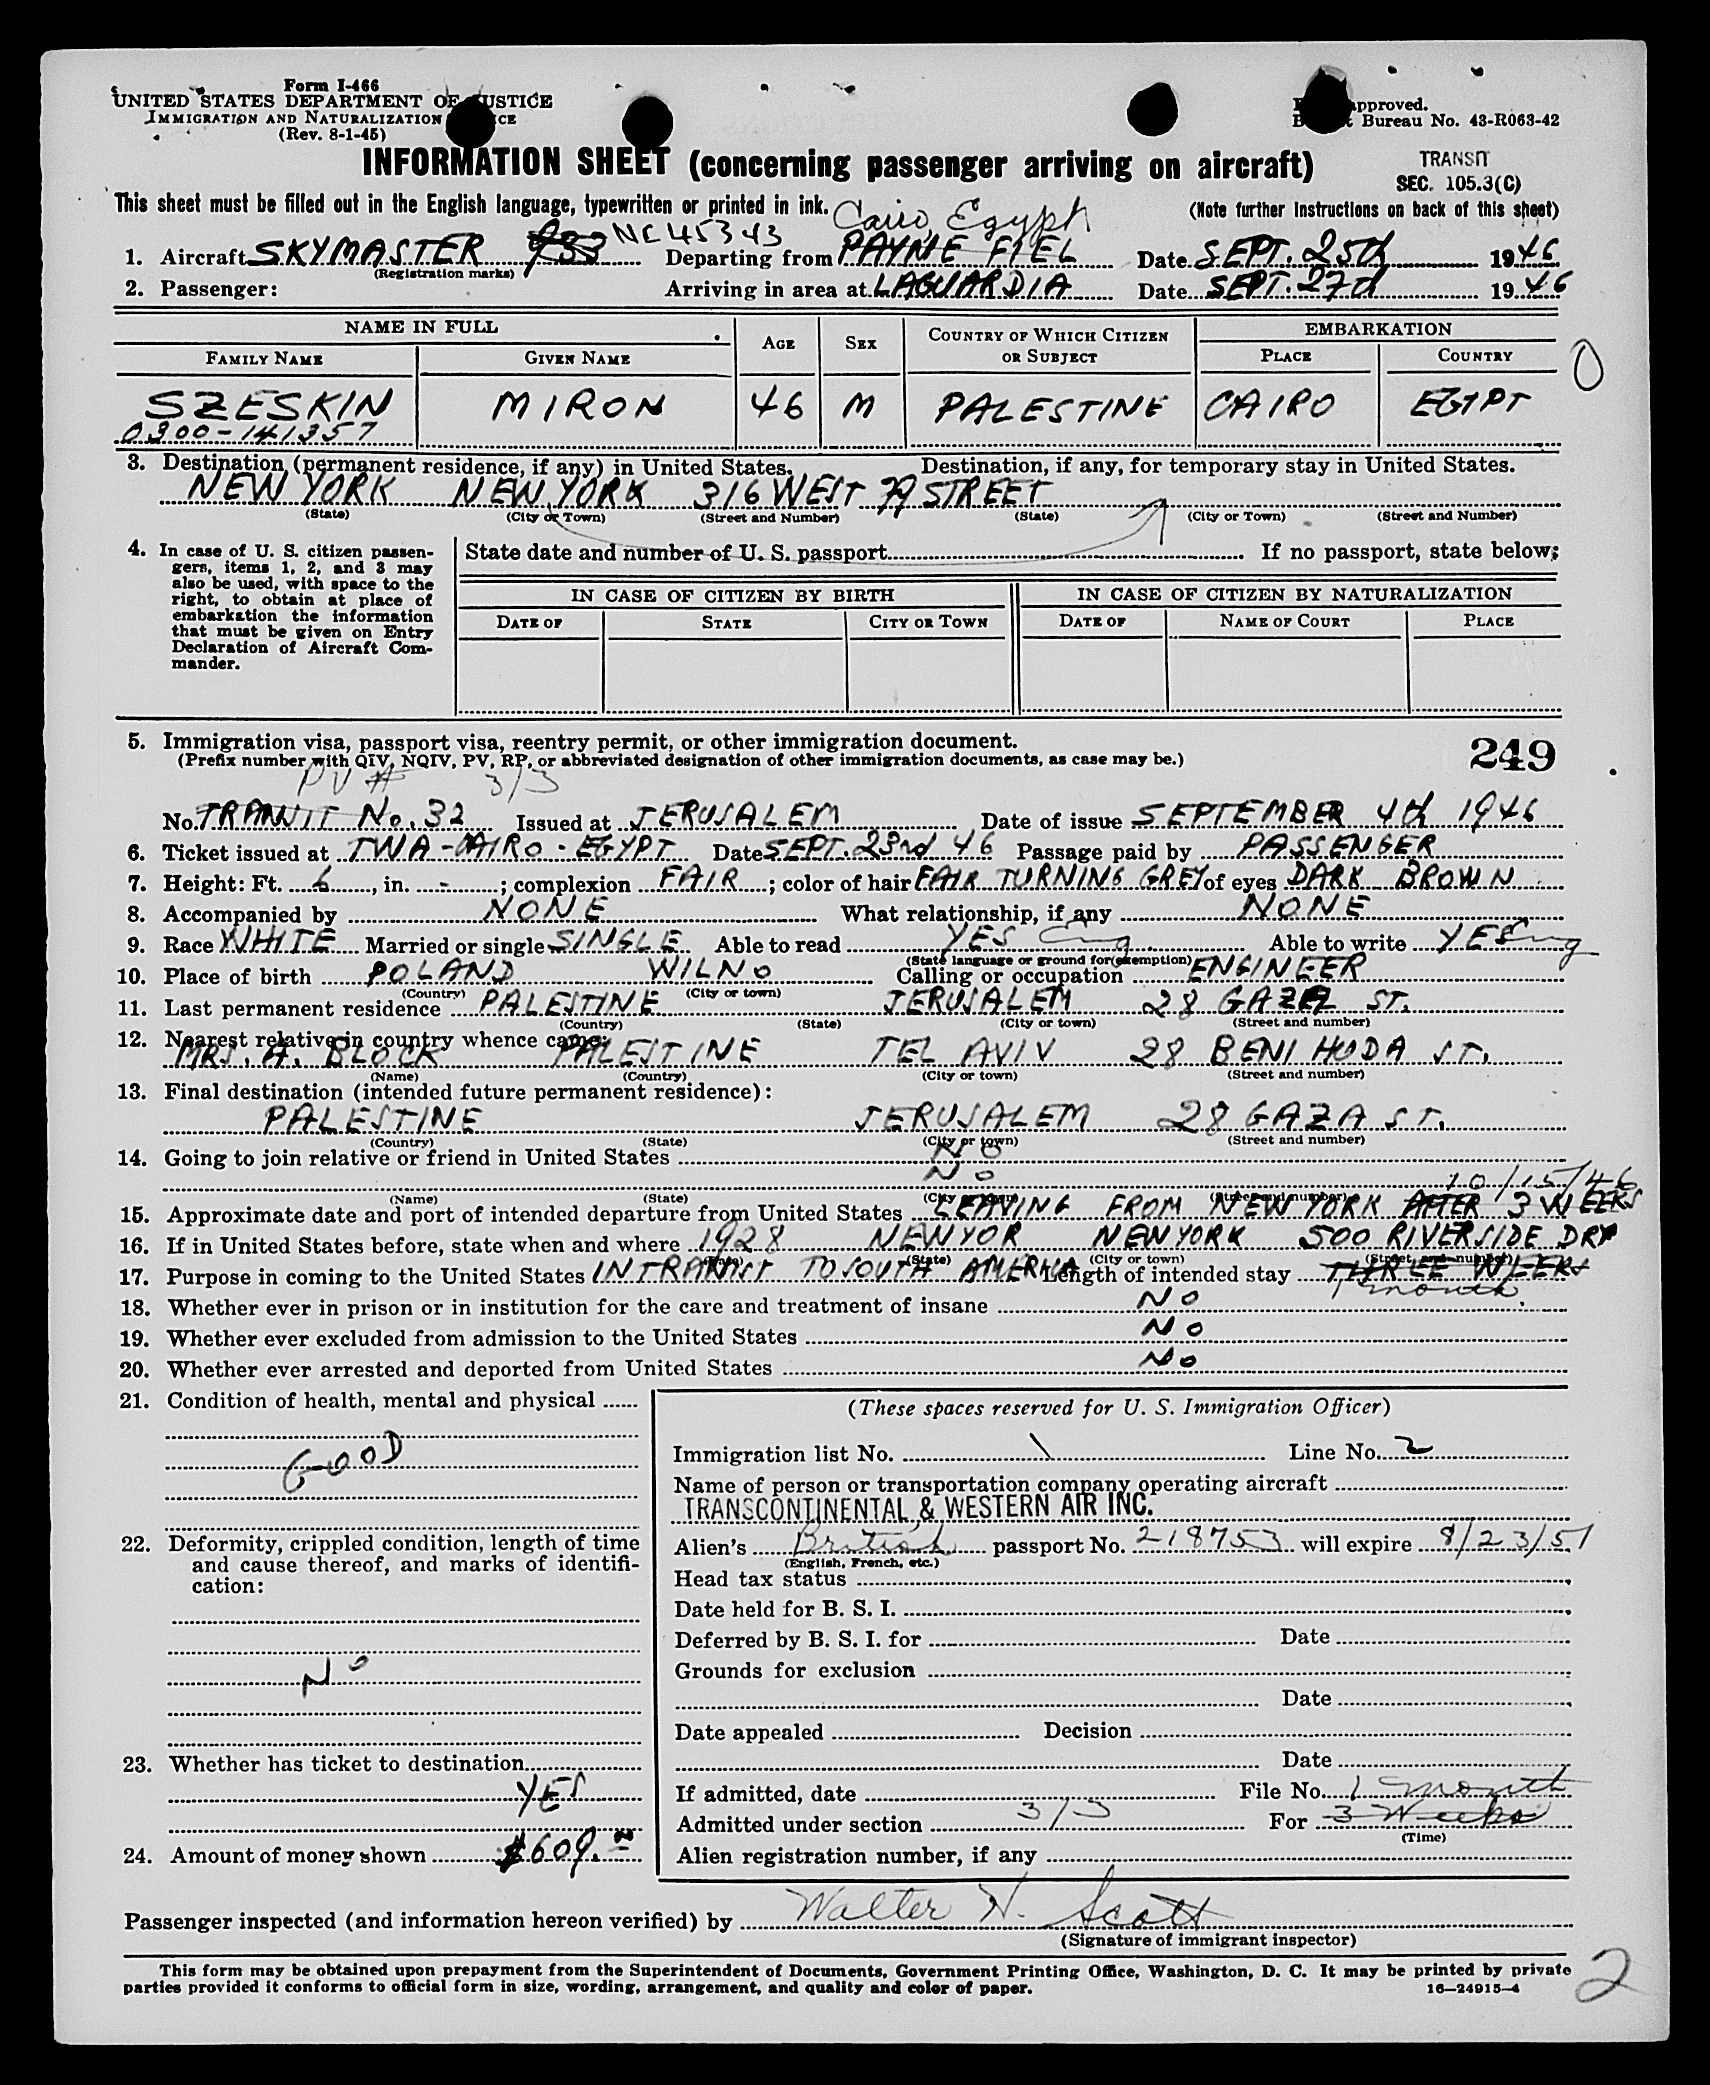 Form I-466
UNITED STATES DEPARTMENT OF JUSTICE
IMMIGRATION AND NATURALIZATION
(Rev. 8-1-45)
pproved.
Bureau No. 43-R063-42
INFORMATION SHEET (concerning passenger arriving on aircraft)
TRANSIT
SEC. 105.3(C)
This sheet must be filled out in the English language, typewritten or printed in ink.
(Note further instructions on back of this sheet)
Cairo, Egypt
NC45343
1. Aircraft SKYMASTER 933 Departing from PAYNE FIEL Date SEPT. 25th 1946
(Registration marks)
2. Passenger: Arriving in area at LAGUARDIA Date SEPT. 27d 1946
NAME IN FULL AGE SEX COUNTRY OF WHICH CITIZEN OR SUBJECT EMBARKATION
FAMILY NAME GIVEN NAME PLACE COUNTRY
SZESKIN MIRON 46 M PALESTINE CAIRO EGYPT
0300-141357
0
3. Destination (permanent residence, if any) in United States. Destination, if any, for temporary stay in United States.
NEW YORK NEW YORK 316 WEST 79 STREET
(State) (City or Town) (Street and Number) (State) (City or Town) (Street and Number)
4. In case of U. S. citizen passengers, items 1, 2, and 3 may also be used, with space to the right, to obtain at place of embarkation the information that must be given on Entry Declaration of Aircraft Commander.
State date and number of U. S. passport If no passport, state below;
IN CASE OF CITIZEN BY BIRTH IN CASE OF CITIZEN BY NATURALIZATION
DATE OF STATE CITY OR TOWN DATE OF NAME OF COURT PLACE
5. Immigration visa, passport visa, reentry permit, or other immigration document.
(Prefix number with QIV, NQIV, PV, RP, or abbreviated designation of other immigration documents, as case may be.)
249
PV # 3/3
No. TRANSIT No. 32 Issued at JERUSALEM Date of issue SEPTEMBER 4th 1946
6. Ticket issued at TWA-CAIRO-EGYPT Date SEPT. 23nd 46 Passage paid by PASSENGER
7. Height: Ft. 6, in. -; complexion FAIR; color of hair FAIR TURNING GREY of eyes DARK BROWN
8. Accompanied by NONE What relationship, if any NONE
9. Race WHITE Married or single SINGLE Able to read YES Eng. Able to write YES Eng
(State language or ground for exemption)
10. Place of birth POLAND WILNO Calling or occupation ENGINEER
(Country) (City or town)
11. Last permanent residence PALESTINE JERUSALEM 28 GAZA ST.
(Country) (State) (City or town) (Street and number)
12. Nearest relative in country whence came:
MRS. A. BLOCK PALESTINE TEL AVIV 28 BENI HUDA ST.
(Name) (Country) (City or town) (Street and number)
13. Final destination (intended future permanent residence):
PALESTINE JERUSALEM 28 GAZA ST.
(Country) (State) (City or town) (Street and number)
14. Going to join relative or friend in United States NO
NO
10/15/46
(Name) (State) (City or town) (Street and number)
15. Approximate date and port of intended departure from United States LEAVING FROM NEW YORK AFTER 3 WEEKS
16. If in United States before, state when and where 1928 NEWYOR NEWYORK 500 RIVERSIDE DRY
(Date) (State) (City or town) (Street and number)
17. Purpose in coming to the United States IN TRANSIT TO SOUTH AMERICA Length of intended stay THREE WEEKS
1 month.
18. Whether ever in prison or in institution for the care and treatment of insane NO
19. Whether ever excluded from admission to the United States NO
20. Whether ever arrested and deported from United States NO
21. Condition of health, mental and physical
GOOD
22. Deformity, crippled condition, length of time and cause thereof, and marks of identification:
NO
23. Whether has ticket to destination
YES
24. Amount of money shown $609.00
(These spaces reserved for U. S. Immigration Officer)
Immigration list No. 1 Line No. 2
Name of person or transportation company operating aircraft
TRANSCONTINENTAL & WESTERN AIR INC.
Alien's British passport No. 218753 will expire 8/23/51
(English, French, etc.)
Head tax status
Date held for B. S. I.
Deferred by B. S. I. for Date
Grounds for exclusion
Date
Date appealed Decision
Date
If admitted, date File No. 1 month
Admitted under section 3/3 For 3 Weeks
(Time)
Alien registration number, if any
Passenger inspected (and information hereon verified) by Walter H. Scott
(Signature of immigrant inspector)
This form may be obtained upon prepayment from the Superintendent of Documents, Government Printing Office, Washington, D. C. It may be printed by private
parties provided it conforms to official form in size, wording, arrangement, and quality and color of paper.
16—24915-4
2